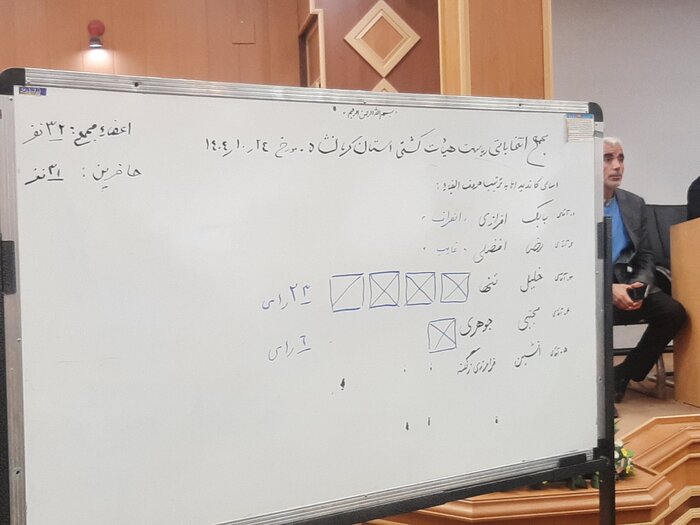 بسم الله الرحمن الرحیم
مجمع انتخاباتی ریاست هیئت کشتی استان کرمانشاه مورخ ۱۴۰۴/۱۰/۲۴
اعضاء مجمع: ۳۲ نفر
حاضرین: ۳۱ نفر
اسامی کاندیداها به ترتیب حروف الفبا:
۱. آقای بابک افرازی - انصراف -
۲. آقای رضا افضلی - غایب -
۳. آقای خلیل تنها ۲۳ رای
۴. آقای مجتبی جوهری ۶ رای
۵. آقای افشین